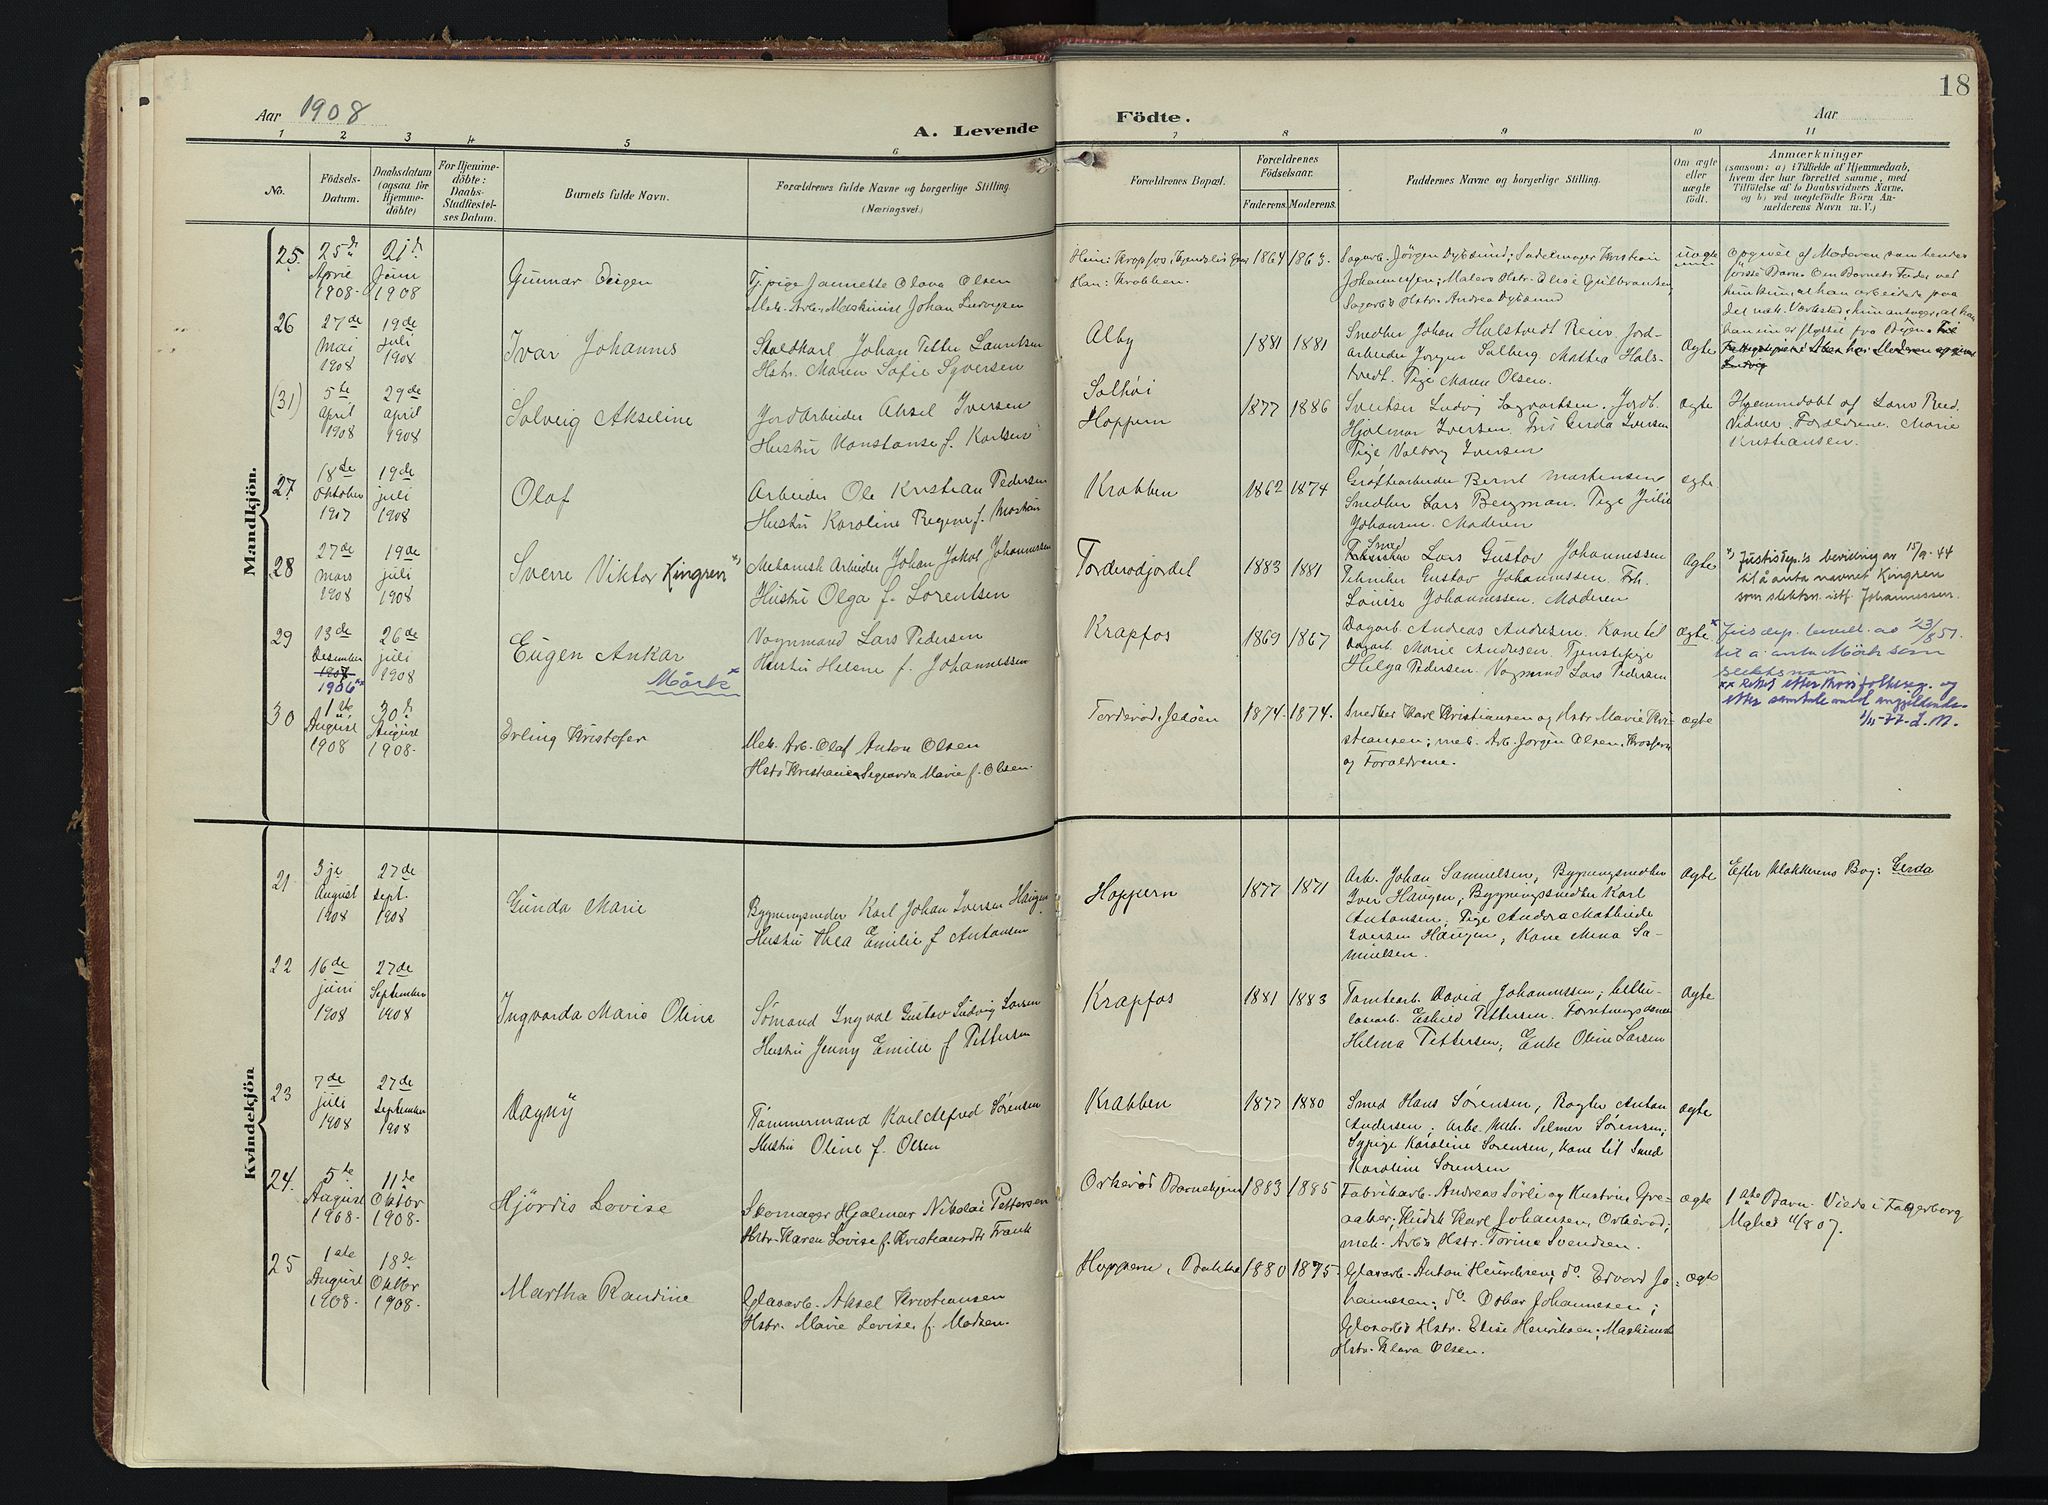 18
Aar 1908
A. Levende
Födte.
Aar
1 2 3 4 5 6 7 8 9 10 11
No.
Födsels-
Datum.
Daabsdatum
(ogsaa for
Hjemme-
döbte)
For Hjemme-
döbte:
Daabs-
Stadfæstel-
ses Datum.
Barnets fulde Navn.
Forældrenes fulde Navne og borgerlige Stilling.
(Næringsvei.)
Forældrenes Bopæl.
Forældrenes
Födselsaar.
Faderens. Moderens.
Faddernes Navne og borgerlige Stilling.
Om ægte
eller
uægte
födt.
Anmærkninger
(saasom: a) i Tilfælde af Hjemmedaab,
hvem der har forrettet samme, med
Tilföielse af to Daabsvidners Navne.
og b) ved uægtefödte Börn An-
melderens Navn m. V.)
Mandkjön.
25.
25de
April
1908.
21de
Juni
1908
Gunnar
Tj. pige Jannette Olava Olsen
Mek. Arb. Maskinist Johan
Han: Krabben.
1864 1863.
Sagarb. Jörgen Dybsund; Sadelmager Kristian
Johannesen; Malers Hstr. Elise Gulbransen
Sagarbs Hstr. Andrea Dybsund
uægte
Opgivet af Moderen som hendes
første Barn. Om Barnets Fader ved
hun kun, at han arbeidede paa
det mek. Værksted; hun antager, at han
26
27de
Mai
1908
19de
juli
1908
Ivar Johannes
Staldkarl Johan Petter Lauritsen
Hstr. Maren Sofie Syversen
Alby
1881 1881
Snedker Johan Halstvedt Reier Jord-
arbeider Jørgen Solberg Mathea Hals-
tvedt. Pige Maren Olsen.
Ægte
(31)
5te
April
1908
29de
April
1908
Solveig Akseline
Jordarbeider Aksel Iversen
Hustru Konstanse f. Karlsen
Solhøi
Hoppern
1877 1886
Ludvig Jordb.
Hjalmar Iversen. Frk Gerda Iversen
Pige Valborg Iversen
Ægte
Hjemmedøbt af Lars Reid.
Vidner. Forældrene. Marie
Kristiansen.
27
18de
Oktober
1907
19de
juli
1908
Olaf
Arbeider Ole Kristian Pedersen
Hustru Karoline Regine f.
Krabben
1862 1874
Grøftearbeider Bernt Martensen
Snedker Lars Bergman. Pige Julie
Johansen. Moderen
ægte
28
27de
Mars
1908
19de
juli
1908
Sverre Viktor Kingren *)
Mekanisk Arbeider Johan Jakob Johannessen
Hustru Olga f. Lorentsen
Torderødjordet
1883 1881
Smed Lars Gustav Johannessen
Tekniker Gustav Johannessen. Frk.
Louise Johannessen. Moderen
Ægte
*) Justisdep.'s bevilling av 15/9-44
til å anta navnet Kingren
som slektsn. istf. Johannessen.
29
13de
Desember
1907
1906**
26de
juli
1908
Eugen Ankar
Mørk*
Vognmand Lars Pedersen
Hustru Helene f. Johannessen
Krapfos
1869 1867
Dagarb. Andreas Andresen. Kone til
Dagarb. Marie Andresen, Tjenstepige
Helga Pedersen. Vognmand Lars Pedersen
Ægte
* Jus. dep. bevill. av 23/8 51.
til å anta Mørk som
slektsnavn
** Rettet etter folkereg. og
etter samtale med
1/11-77
30
1ste
August
1908
30te
August
1908.
Erling Kristofer
Mek. Arb. Olaf Anton Olsen
Hstr Kristiane Marie f. Olsen.
Torderød, Jeløen
1874. 1874.
Snedker Karl Kristiansen og Hstr Marie Kri-
stiansen; mek. Arb. Jörgen Olsen, Krosfern
og Forældrene.
ægte
Kvindekjön
21
3je
August
1908
27de
Sept.
1908
Gunda Marie
Bygningsneder Karl Johan Iversen Haugen
Hustru Thea Emilie f Antonsen
Hoppern
1877 1871
Arb. Johan Samuelsen, Bygningsnedker
Iver Haugen, Bygningsnedker Karl
Antonsen. Pige Andrea Mathilde
Iversen Haugen, Kone Mina Sa-
muelsen.
Ægte
Efter Klokkerens Bog: Gerda
22
16de
juni
1908
27de
September
1908
Ingvarda Marie Oline
Sømand Ingval Gustav Ludvig Larsen
Hustru Jenny Emilie f Pettersen
Krapfos
1881 1883
Tomtearb. David Johannessen,
Eskild Pettersen.
Hilma Pettersen; Enke Oline Larsen
Ægte
23
7de
juli
1908
27de
September
1908
Dagny
Tømmermand Karl Alfred Sørensen
Hustru Oline f. Olsen
Krabben
1877 1880
Smed Hans Sørensen, Anton
Andersen, Arb. Mek. Selmer Sørensen;
Sypige Karoline Sørensen, Kone til Smed
Karoline Sørensen
Ægte
24.
5te
August
1908
11de
Oktober
1908.
Hjördis Lovise
Skomager Hjalmar Nikolai Pettersen
Hstr. Karen Lovise f. Kristiansdtr Frank
Orkerød Barnehjem
1883 1885
Fabrikarb. Andreas Sörli og Hustru,
Karl Johansen, Orkerød;
mek. Arbs Hstr. Torine Svendsen.
ægte
1ste Barn. Viede i Fagerborg
11/8 07.
25
1ste
August
1908.
18de
Oktbr
1908.
Martha Randine
Glasarb. Aksel Kristiansen
Hstr. Marie Lovise f. Madsen.
Hoppern, Bakke
1880 1875.
Glasarb. Anton Henriksen; do. Edvard Jo-
hannesen; do. Oskar Johannesen;
Glasarbs Hstr. Elise Henriksen; Maskinists
Hstr. Klara Olsen.
ægte